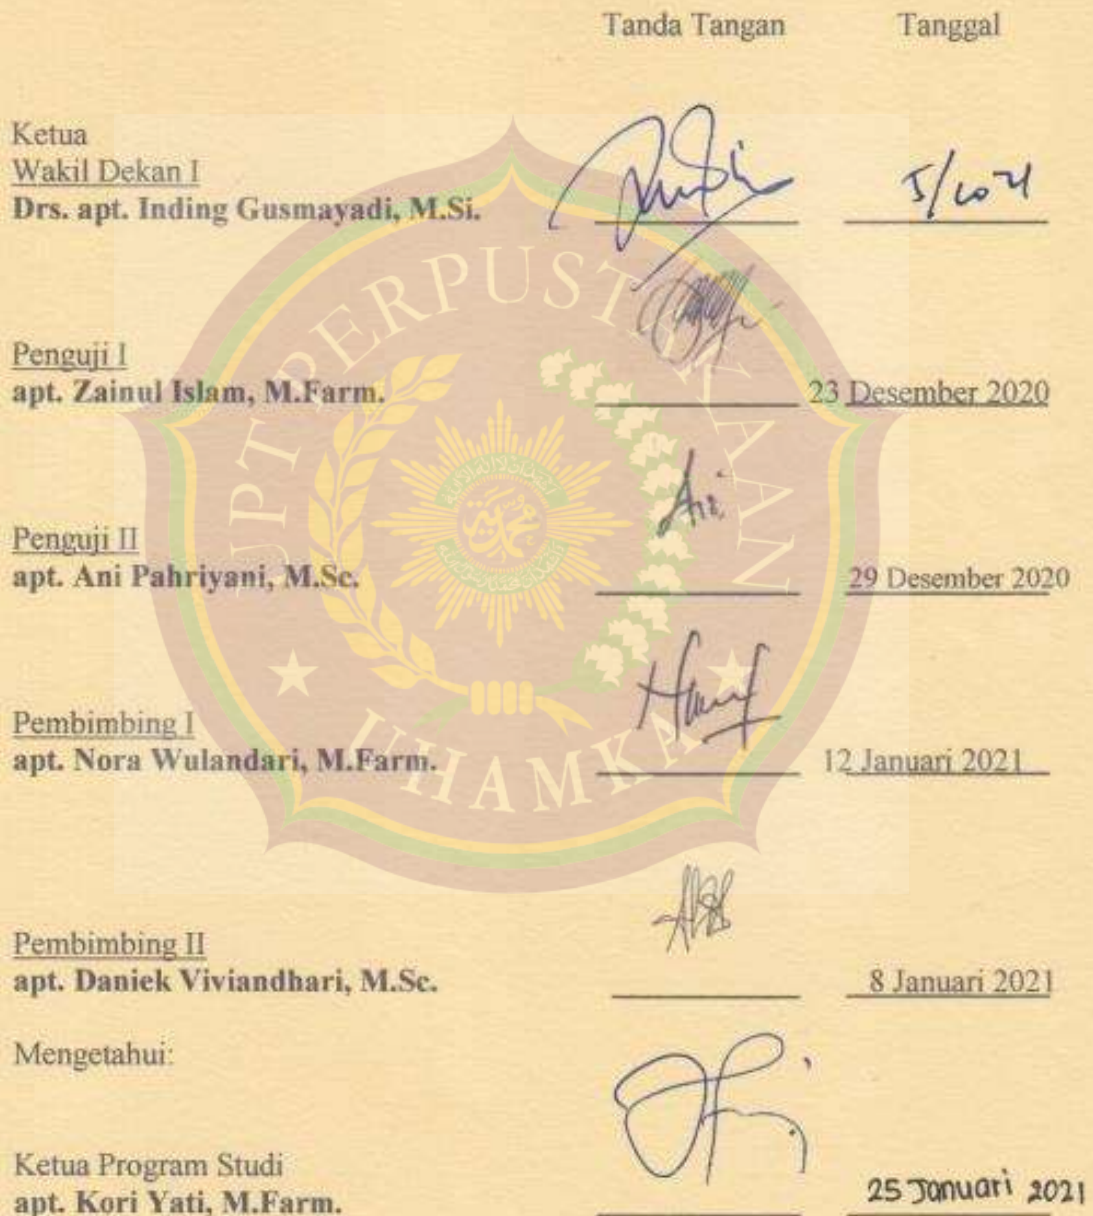 Tanda Tangan Tanggal
Ketua
Wakil Dekan I
Drs. apt. Inding Gusmayadi, M.Si.
Penguji I
apt. Zainul Islam, M.Farm. 23 Desember 2020
Penguji II
apt. Ani Pahriyani, M.Sc. 29 Desember 2020
Pembimbing I
apt. Nora Wulandari, M.Farm. 12 Januari 2021
Pembimbing II
apt. Daniek Viviandhari, M.Sc. 8 Januari 2021
Mengetahui:
Ketua Program Studi
apt. Kori Yati, M.Farm. 25 Januari 2021
UPT PERPUSTAKAAN
UHAMKA